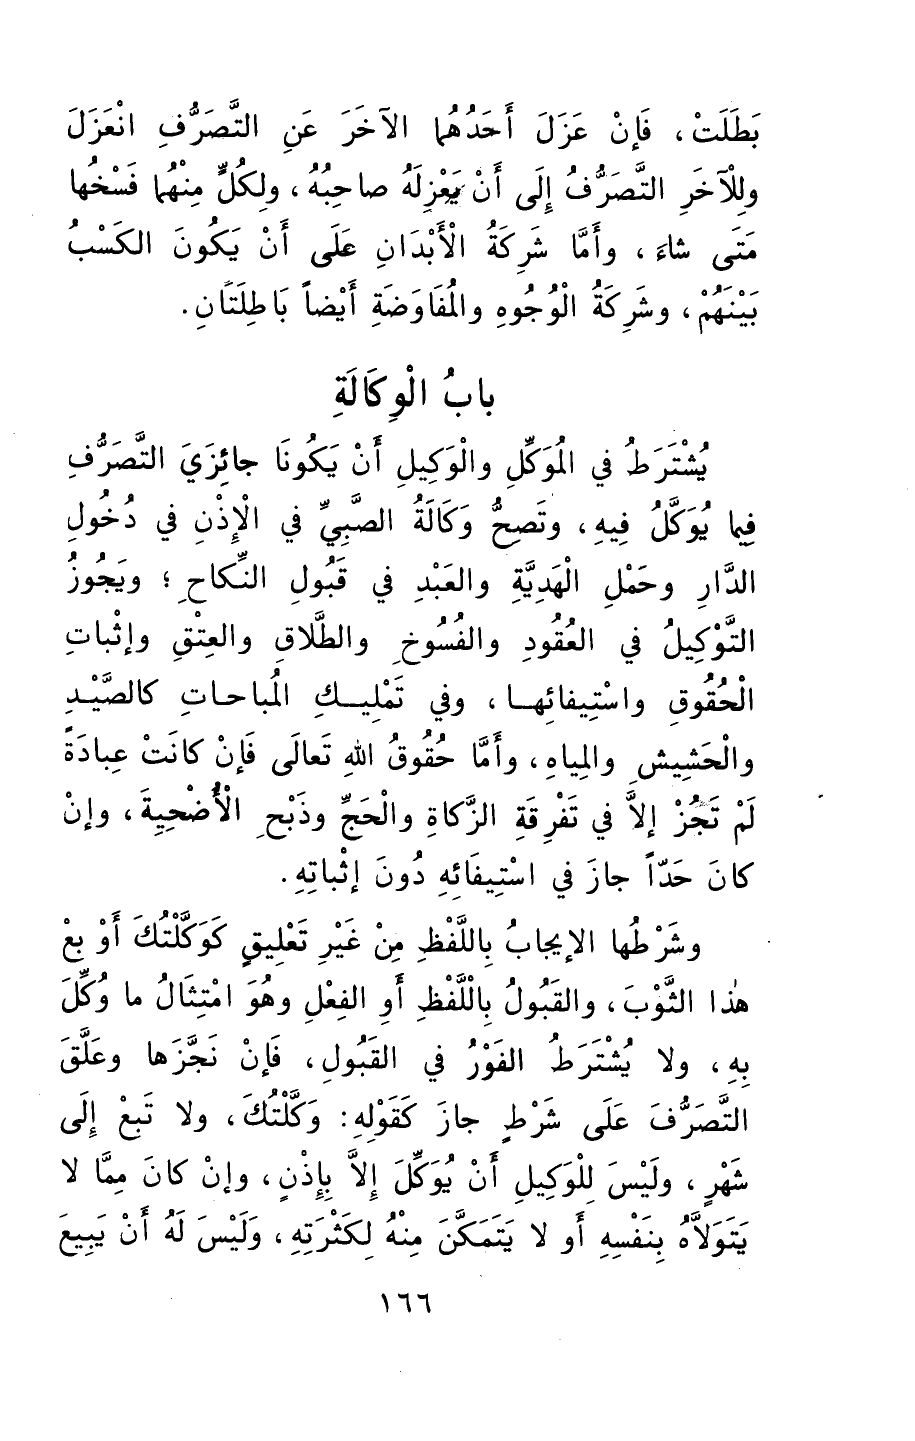 بَطَلَتْ، فَإِنْ عَزَلَ أَحَدُهُما الآخَرَ عَنِ التَّصَرُّفِ انْعَزَلَ
وللْآخَرِ التَّصَرُّفُ إِلَى أَنْ يَعْزِلَهُ صاحِبُهُ، ولِكُلٍّ مِنْهُما فَسْخُها
مَتَى شاءَ، وأَمَّا شَرِكَةُ الْأَبْدَانِ عَلَى أَنْ يَكُونَ الكَسْبُ
بَيْنَهُمْ، وشَرِكَةُ الْوُجُوهِ والمُفَاوَضَةِ أَيْضاً بَاطِلَتَانِ.
بابُ الْوِكَالَةِ
يُشْتَرَطُ في المُوَكِّلِ والْوَكِيلِ أَنْ يَكُونَا جائِزَيَ التَّصَرُّفِ
فِيما يُوَكَّلُ فِيهِ، وتَصِحُّ وَكَالَةُ الصَّبِيِّ في الْإِذْنِ في دُخُولِ
الدَّارِ وحَمْلِ الْهَدِيَّةِ والعَبْدِ في قَبُولِ النِّكاحِ؛ ويَجُوزُ
التَّوْكِيلُ في العُقُودِ والفُسُوخِ والطَّلاقِ والعِتْقِ وإثْباتِ
الْحُقُوقِ واسْتِيفائِها، وفي تَمْلِيكِ المُباحاتِ كالصَّيْدِ
والْحَشِيشِ والمِياهِ، وأَمَّا حُقُوقُ اللهِ تَعالَى فَإِنْ كانَتْ عِبادَةً
لَمْ تَجُزْ إلاَّ في تَفْرِقَةِ الزَّكاةِ والْحَجِّ وذَبْحِ الْأُضْحِيَةِ، وإنْ
كانَ حَدّاً جازَ في اسْتِيفَائِهِ دُونَ إثْباتِهِ.
وشَرْطُها الإيجابُ بِاللَّفْظِ مِنْ غَيْرِ تَعْلِيقٍ كَوَكَّلْتُكَ أَوْ بِعْ
هٰذا الثَّوْبَ، والقَبُولُ بِاللَّفْظِ أَوِ الفِعْلِ وهُوَ امْتِثَالُ ما وُكِّلَ
بِهِ، ولا يُشْتَرَطُ الفَوْرُ في القَبُولِ، فَإِنْ نَجَّزَها وعَلَّقَ
التَّصَرُّفَ عَلَى شَرْطٍ جازَ كَقَوْلِهِ: وَكَّلْتُكَ، ولا تَبِعْ إِلَى
شَهْرٍ، ولَيْسَ لِلْوَكِيلِ أَنْ يُوَكِّلَ إِلاَّ بِإِذْنٍ، وإنْ كانَ مِمَّا لا
يَتَوَلاَّهُ بِنَفْسِهِ أَو لا يَتَمَكَّنَ مِنْهُ لِكَثْرَتِهِ، ولَيْسَ لَهُ أَنْ يَبِيعَ
١٦٦